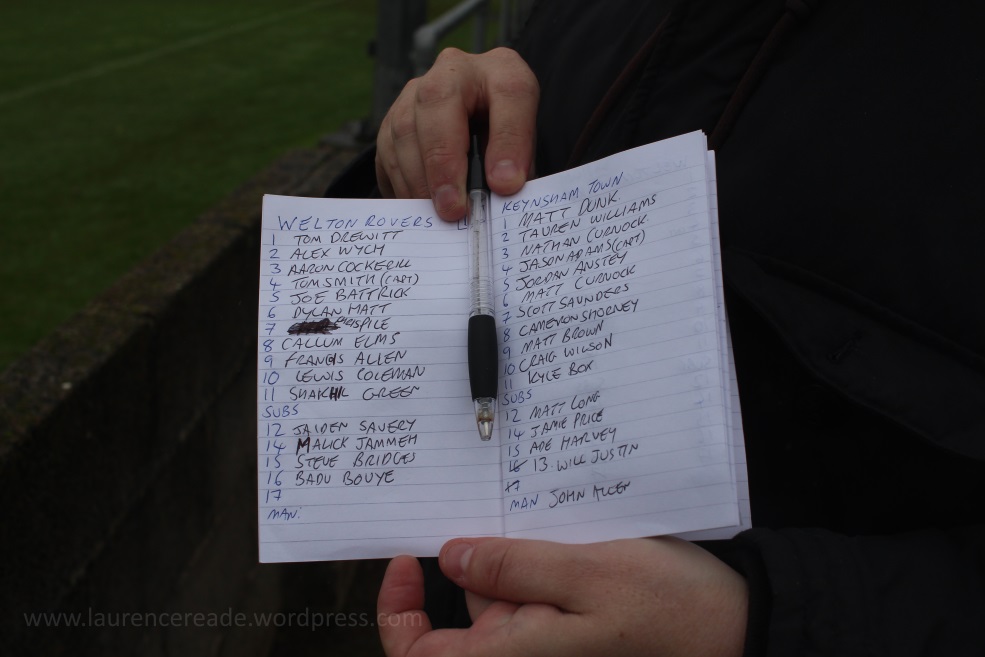 WELTON ROVERS
1 TOM DREWITT
2 ALEX WYCH
3 AARON COCKERILL
4 TOM SMITH (CAPT)
5 JOE BATTRICK
6 DYLAN MATT
7 PILE
8 CALLUM ELMS
9 FRANCIS ALLEN
10 LEWIS COLEMAN
11 SHAKHIL GREEN
SUBS
12 JAIDEN SAVERY
14 MALICK JAMMEH
15 STEVE BRIDGES
16 BADU BOUYE
17
MAN:
KEYNSHAM TOWN
1 MATT DUNK
2 TAUREN WILLIAMS
3 NATHAN CURNOCK
4 JASON ADAMS (CAPT)
5 JORDAN ANSTEY
6 MATT CURNOCK
7 SCOTT SAUNDERS
8 CAMERON SHORNEY
9 MATT BROWN
10 CRAIG WILSON
11 KYLE BOX
SUBS
12 MATT LONG
14 JAMIE PRICE
15 ADE HARVEY
16 13. WILL JUSTIN
17
MAN JOHN ALLEN
www.laurencereade.wordpress.com